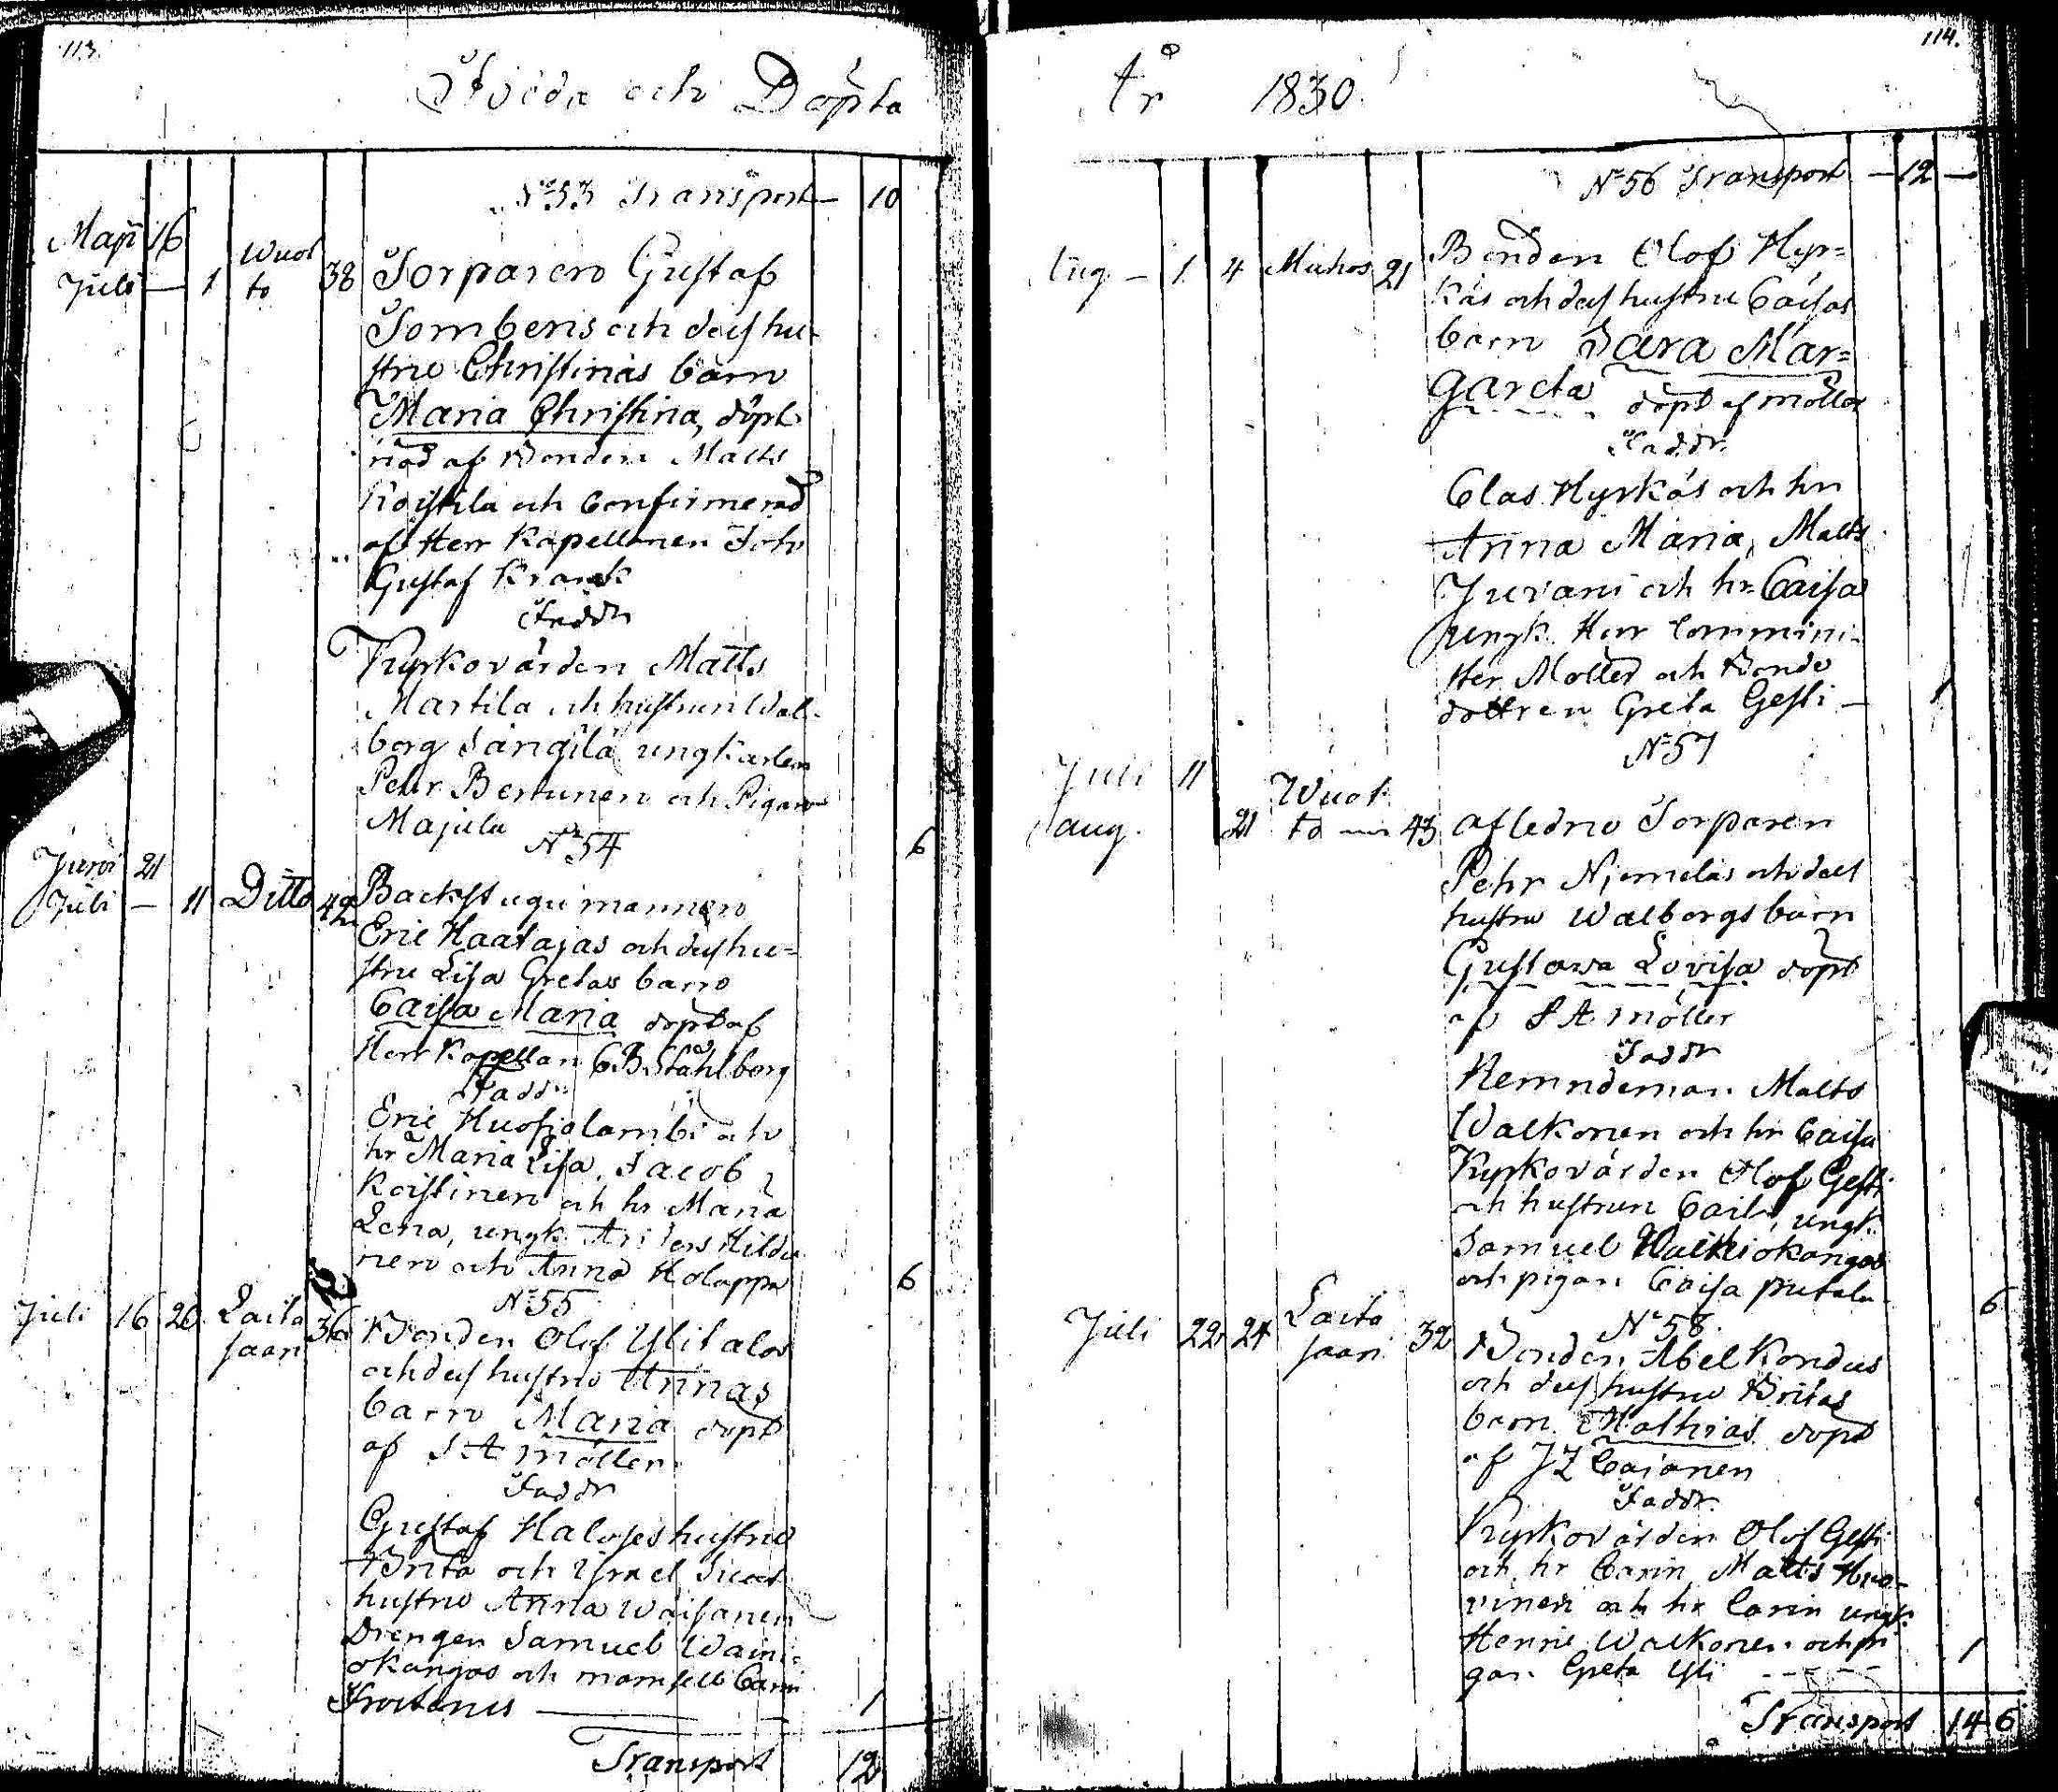 113.
Födde och Döpta
N 53 Transport — 10
Maji 16
Juli — 1 Wuol
to 38 Torparen Gustaf
Tombens och dess hu-
stru Christinas barn
Maria Christina, döpt
nöd af Bonden Matts
Koistila och Confirmerad
af Herr Kapellanen Joh
Gustaf Krank
Faddr
Kyrkovärden Matts
Martila och hustrun Wal-
borg Sängilä ungkarlen
Pehr Bertunen och Pigan
Majula 6
N 54
Juni 21
Juli — 11 Ditto 42 Backstugumannen
Eric Haatajas och dess hu-
stru Lisa Gretas barn
Caisa Maria döpt af
Herr Kapellan C.B. Ståhlberg
Fadd
Eric Huosiolambi och
hr Maria Lisa, Jacob
Koistinen och hr Maria
Lena, ungk Anders Hildu
nen och Anna Holappa 6
N 55
Juli 16 20 Laita
saari 36 Bonden Olof Ylitalos
och dess hustru Annas
barn Maria döpt
af S A Möller
Faddr
Gustaf Halosjes hustru
Brita och Israel
hustru Anna Wäisänen
Drengen Samuel Waini-
okangas och mamsell Carin
Frostenus — 1
Transport 12
114.
År 1830.
N 56 Transport — 12 —
Aug — 1 4 Muhos 21 Bonden Olof Hyr=
käs och dess hustru Caisas
barn Sara Mar=
gareta döpt af Möller
Faddr.
Clas Hyrkäs och hr
Anna Maria, Matts
Juvani och hr Caisa
ungk. Herr Commini-
ster Möller och Bonde
dottren Greta Gesti — 1
N 57
Juli 11
aug. 21 Wuol
to 43 afledne Torparen
Pehr Niemeläs och dess
hustru Walborgs barn
Gustava Lovisa döpt
af S A Möller
Faddr
Nemndeman Matts
Walkonen och hr Caisa
Kyrkovärden Olof Gesti
och hustrun Carin, ungk.
Samuel Wainiokangas
och pigan Caisa Putula 6
N 58.
Juli 22 24 Laita
saari 32 Bonden Abel Kondus
och dess hustru Britas
barn Mathias döpt
af J Z Cajanen
Faddr.
Kyrkovärden Olof Gesti
och hr Carin Matts Huo-
vinen och hr Carin ungk.
Henric Walkonen och pi
gan Greta Ylli 1
Transport 14 6